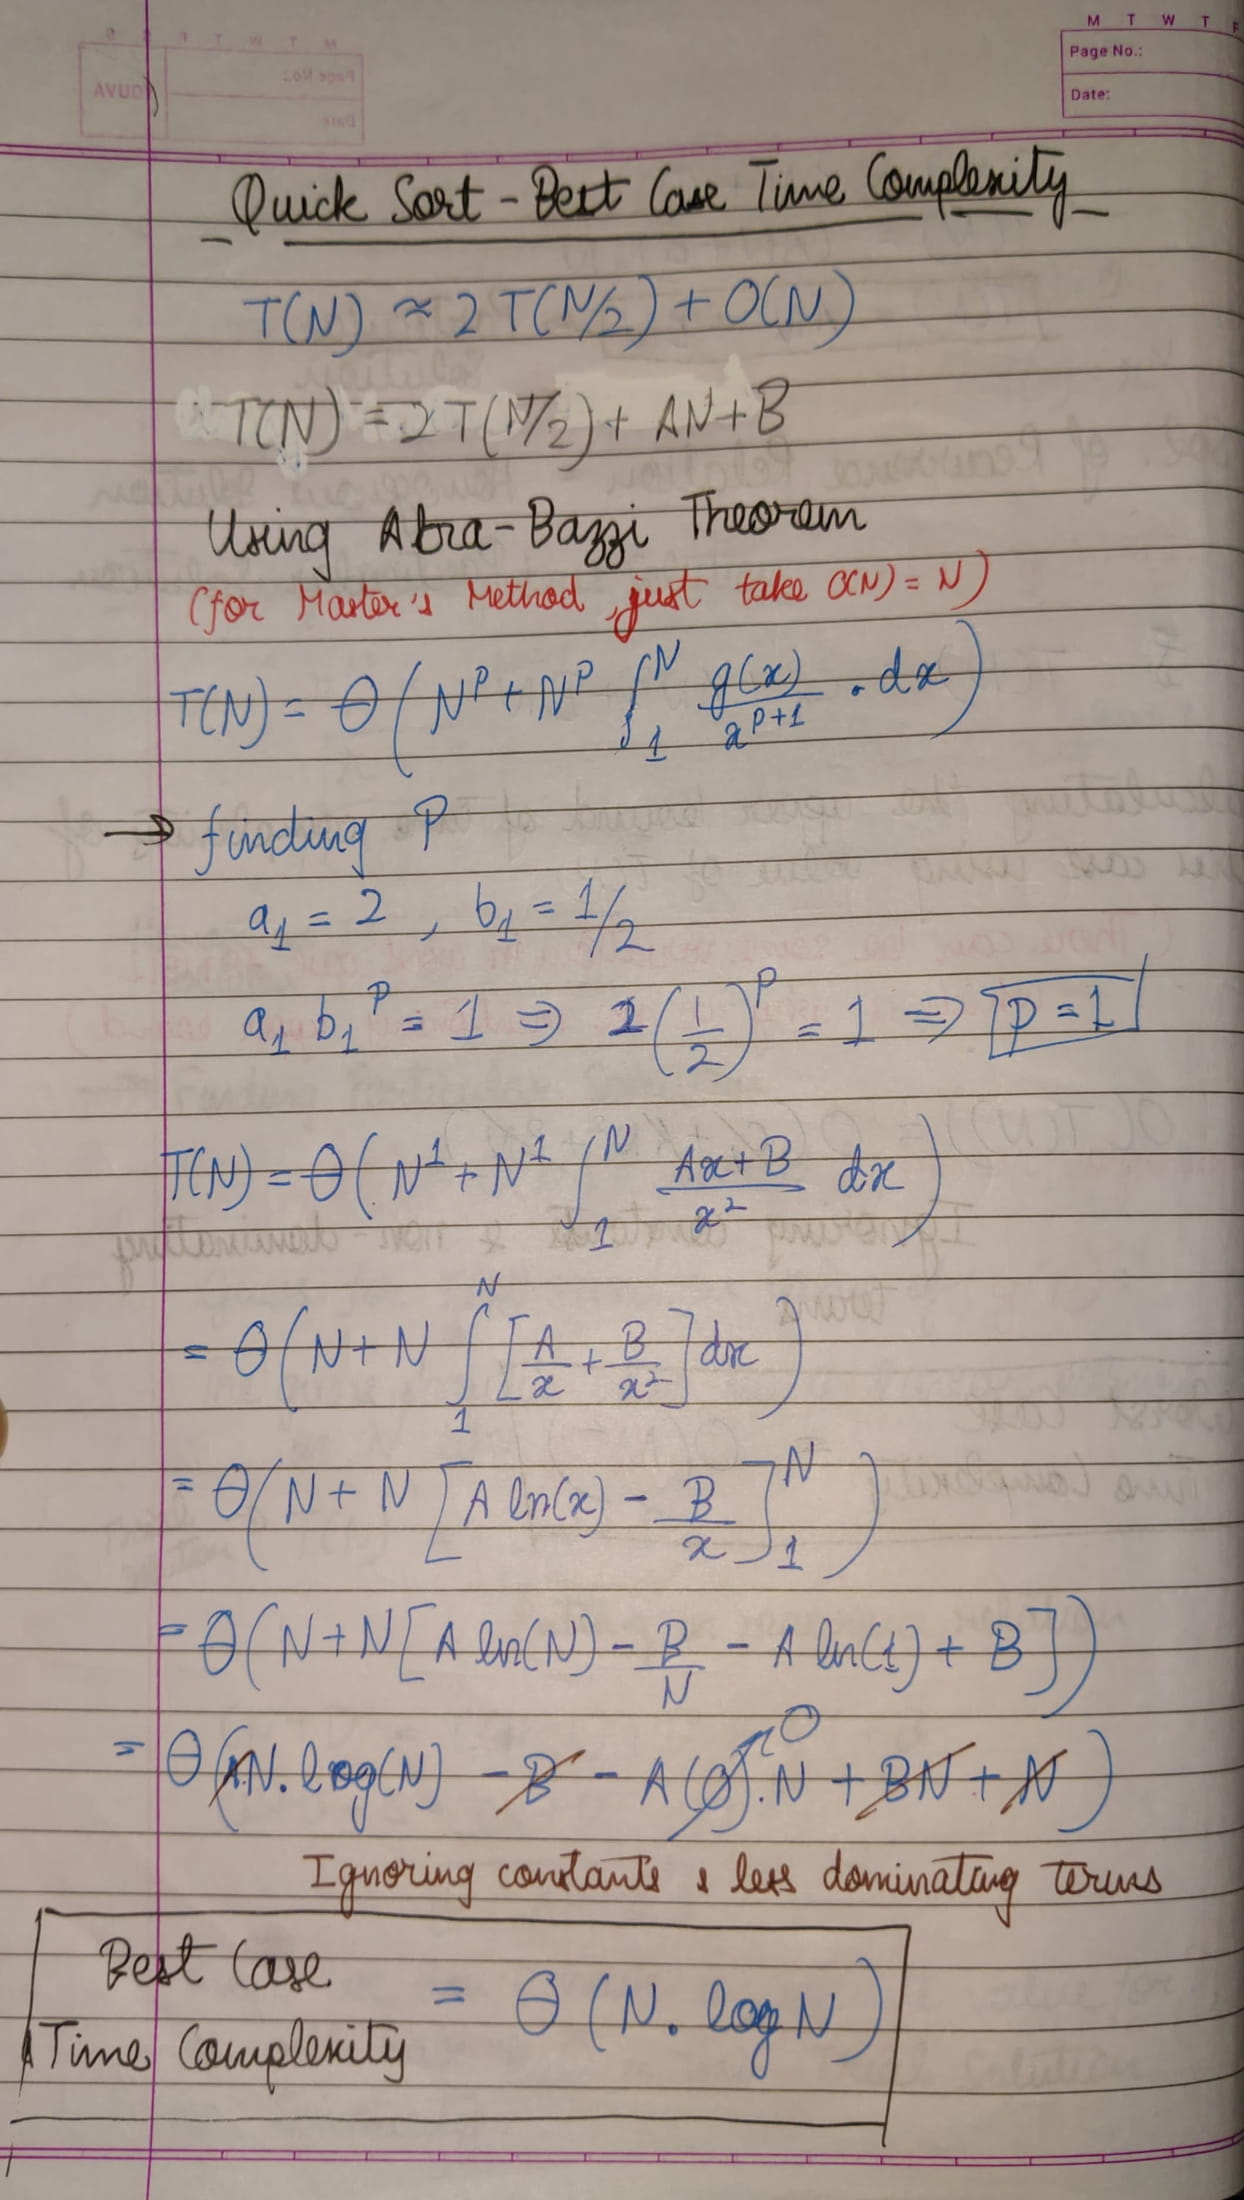 M T W T F
Page No.:
Date:
Quick Sort - Best Case Time Complexity
T(N) ≈ 2 T(N/2) + O(N)
T(N) = 2 T(N/2) + AN + B
Using Akra-Bazzi Theorem
(for Master's Method, just take O(N) = N)
T(N) = θ ( N^p + N^p ∫_1^N g(x)/x^(p+1) . dx )
→ finding P
a₁ = 2 , b₁ = 1/2
a₁ b₁^p = 1 ⇒ 2 (1/2)^p = 1 ⇒ p = 1
T(N) = θ ( N^1 + N^1 ∫_1^N (Ax + B)/x² dx )
= θ ( N + N ∫_1^N [ A/x + B/x² ] dx )
= θ ( N + N [ A ln(x) - B/x ]_1^N )
= θ ( N + N [ A ln(N) - B/N - A ln(1) + B ] )
= θ ( AN. log(N) - B - A(0).N + BN + N ) 0
Ignoring constants & less dominating terms
Best Case Time Complexity = θ (N. log N)